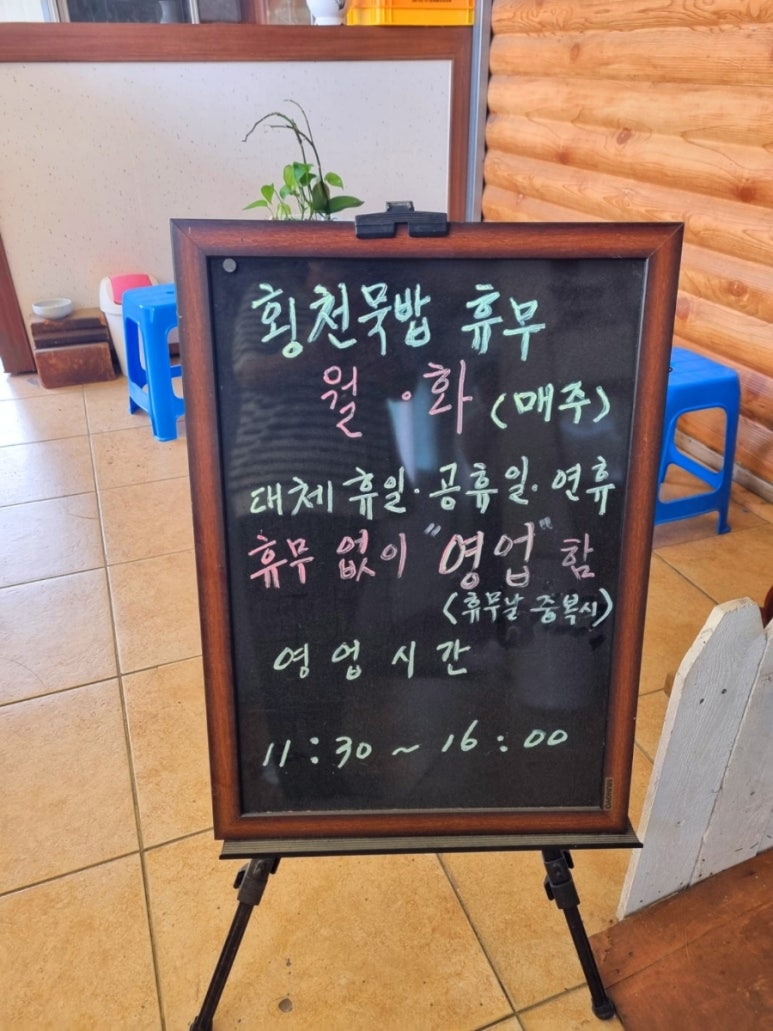 횡천묵밥 휴무
월 · 화 (매주)
대체 휴일 · 공휴일 · 연휴
휴무 없이 "영업" 함
(휴무날 중복시)
영 업 시 간
11 : 30 ~ 16 : 00